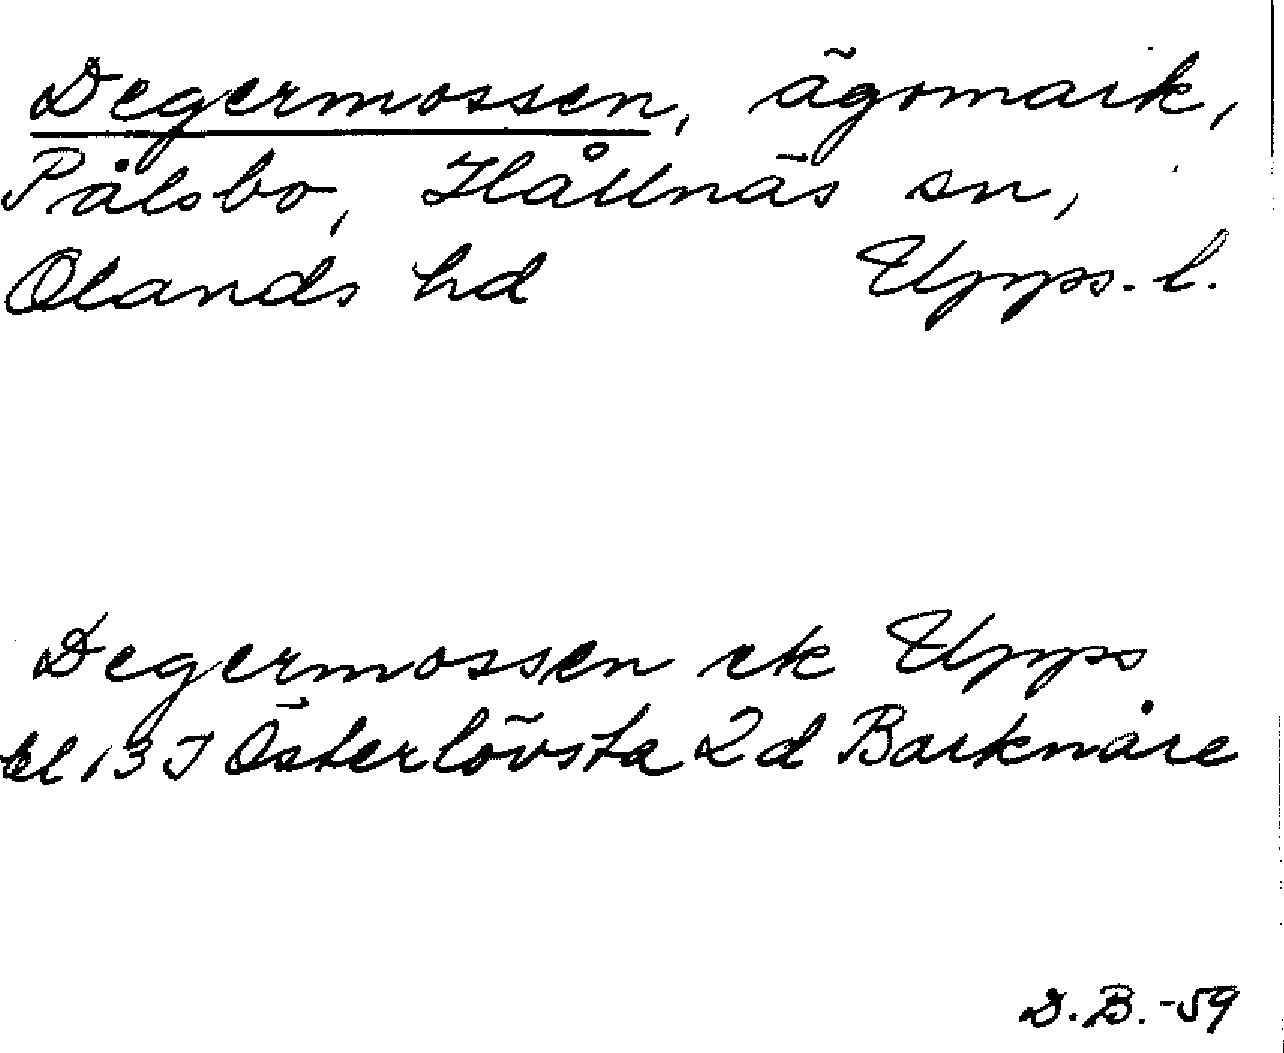 Degermossen, ägomark,
Pålsbo, Hållnäs sn,
Olands hd Upps. l.
Degermossen ek Upps
bl 13 I Österlövsta 2d Barknåre
D.B.-59